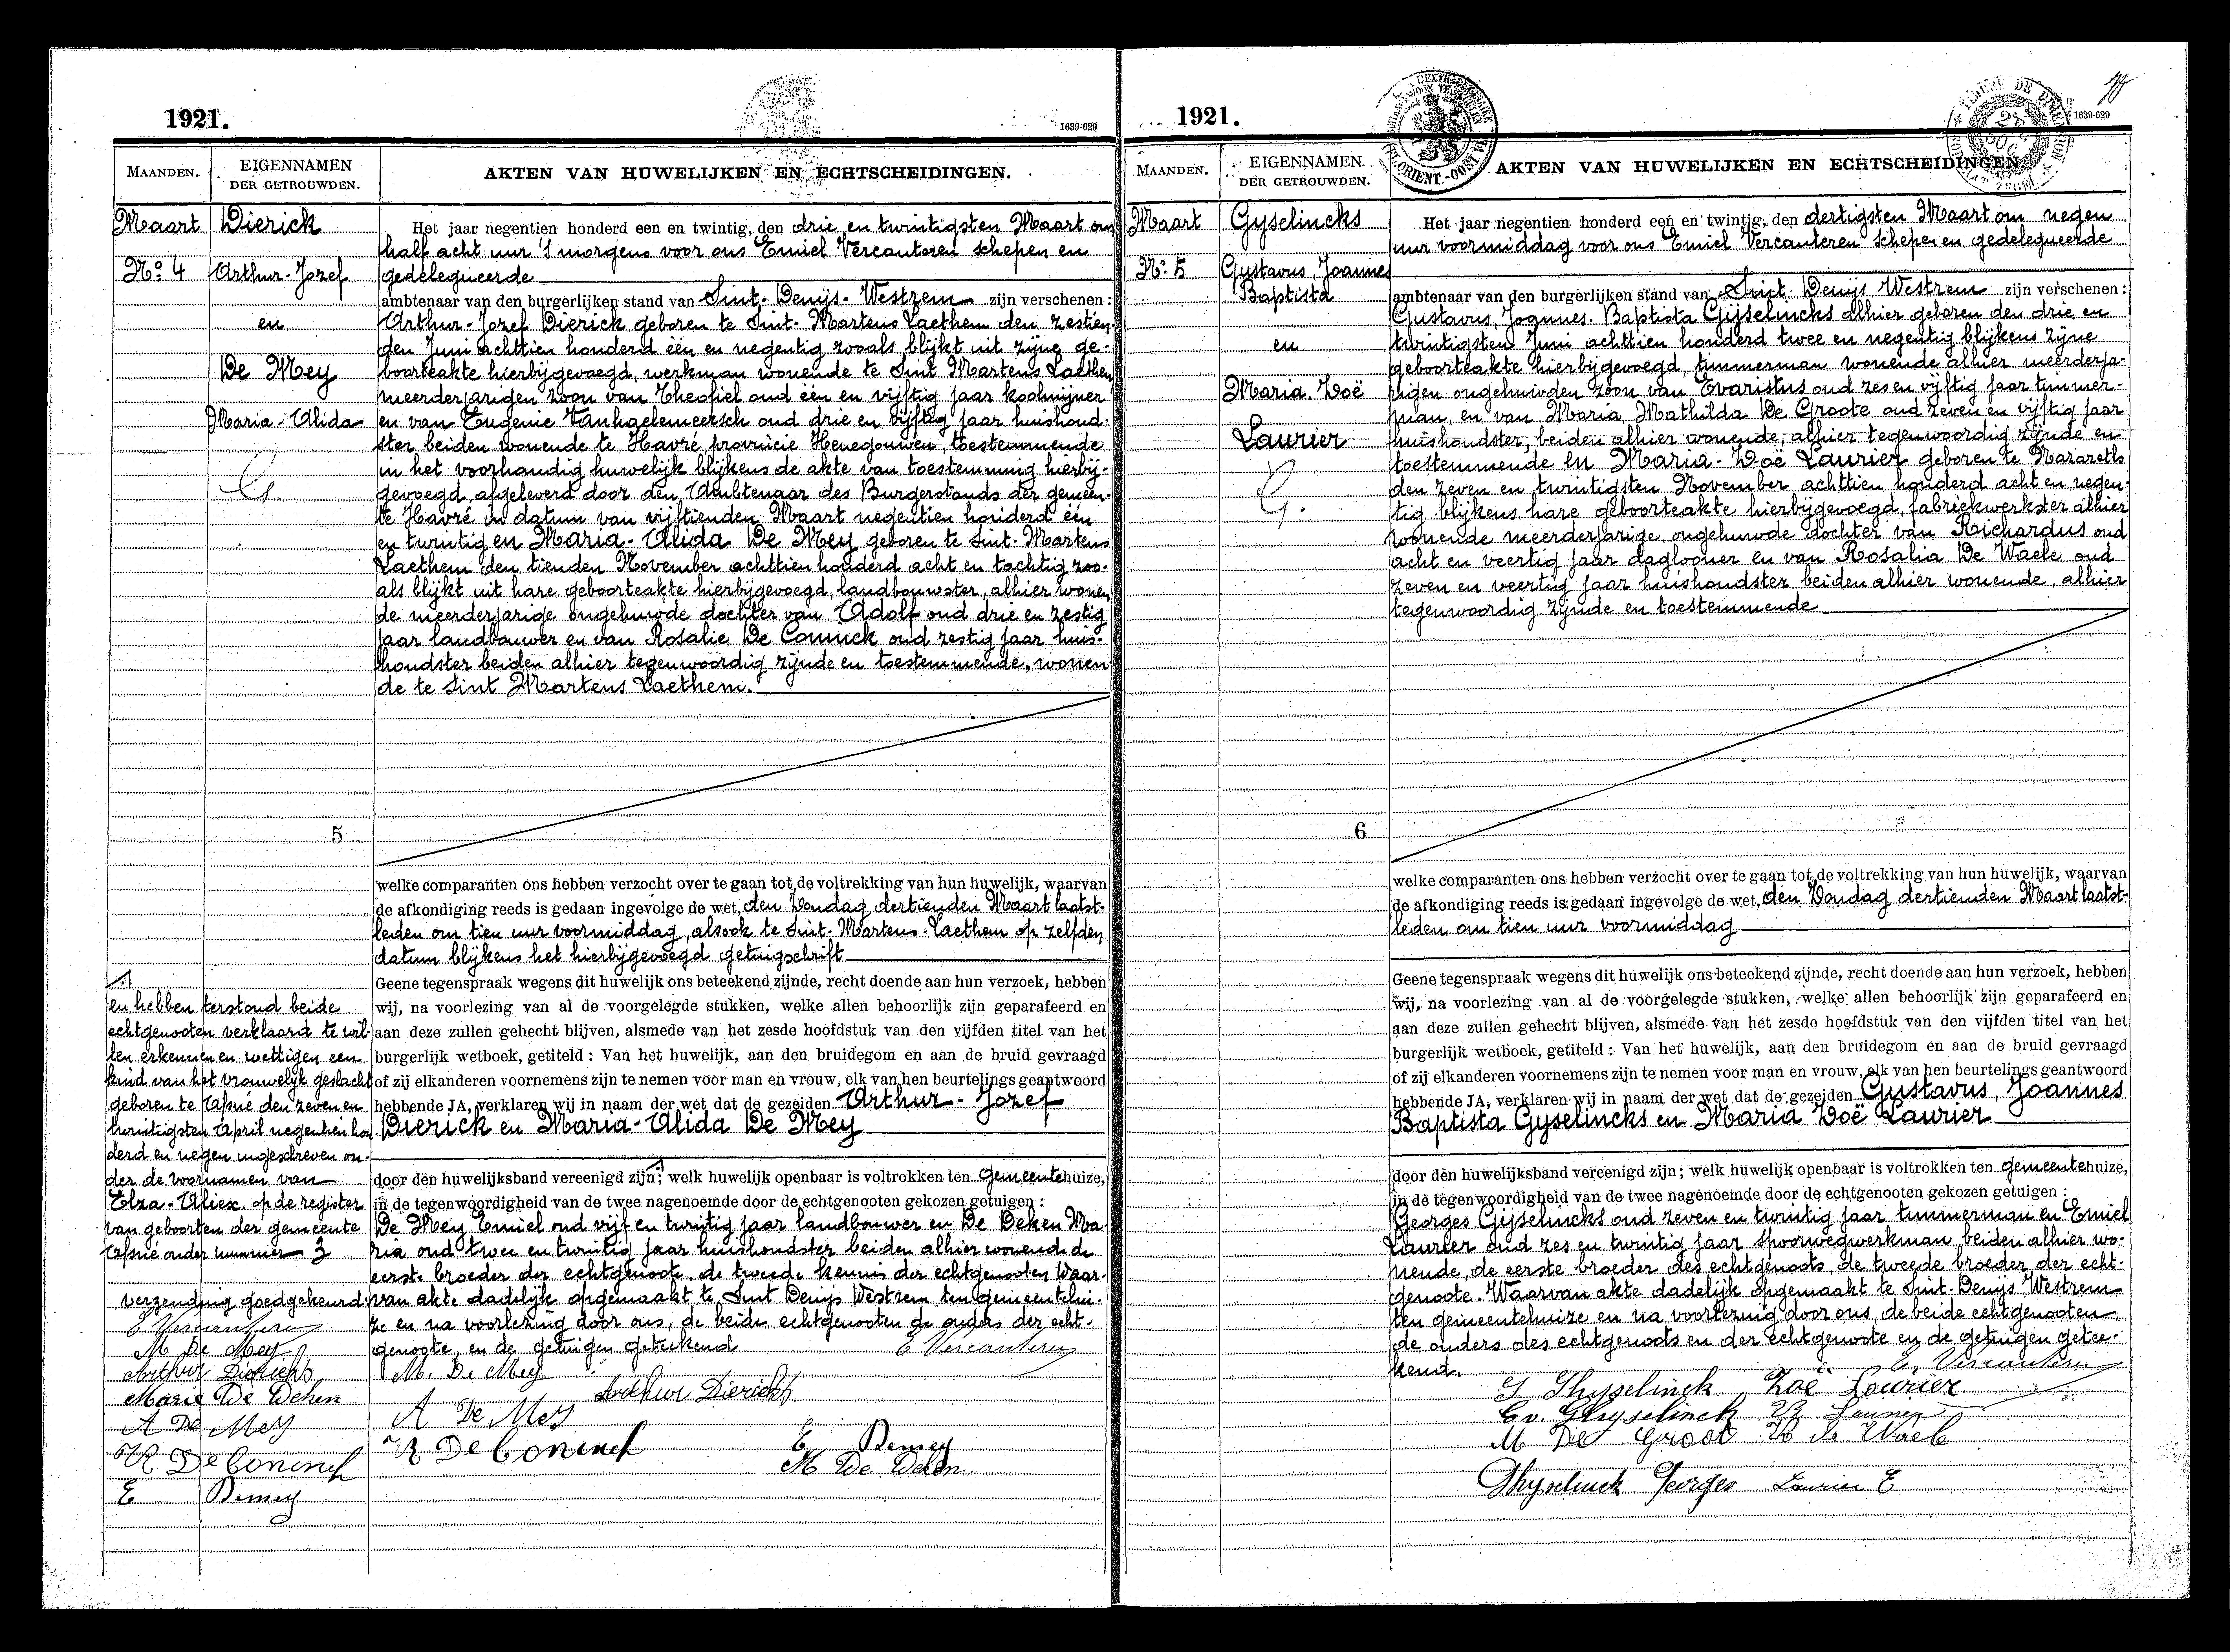 1921.
1639-629
MAANDEN.
EIGENNAMEN
DER GETROUWDEN.
AKTEN VAN HUWELIJKEN EN ECHTSCHEIDINGEN.
Maart
Dierick
No. 4
Arthur-Jozef
en
De Mey
Maria-Alida
Het jaar negentien honderd een en twintig, den drie en twintigsten Maart om
half acht uur 's morgens voor ons Emiel Vercauteren schepen en
gedelegueerde
ambtenaar van den burgerlijken stand van Sint-Denijs-Westrem zijn verschenen:
Arthur-Jozef Dierick geboren te Sint-Martens Laethem den zestien
den Juni achttien honderd één en negentig zooals blijkt uit zijne ge-
boorteakte hierbijgevoegd, werkman wonende te Sint Martens Laethem
meerderjarigen zoon van Theofiel oud één en vijftig jaar koolmijner
en van Eugenie Vanhaelemeersch oud drie en vijftig jaar huishoud-
ster beiden wonende te Havré provincie Henegouwen, toestemmende
in het voorhandig huwelijk blijkens de akte van toestemming hierbij-
gevoegd, afgeleverd door den Ambtenaar des Burgerstands der gemeen-
te Havré in datum van vijftienden Maart negentien honderd één
en twintig en Maria-Alida De Mey geboren te Sint-Martens
Laethem den tienden November achttien honderd acht en tachtig zoo-
als blijkt uit hare geboorteakte hierbijgevoegd, landbouwster, alhier wonen
de meerderjarige ongehuwde dochter van Adolf oud drie en zestig
jaar landbouwer en van Rosalie De Connck oud zestig jaar huis-
houdster beiden alhier tegenwoordig zijnde en toestemmende, wonen
de te Sint Martens Laethem.
5
welke comparanten ons hebben verzocht over te gaan tot de voltrekking van hun huwelijk, waarvan
de afkondiging reeds is gedaan ingevolge de wet, den Zondag dertienden Maart laatst-
leden om tien uur voormiddag, alsook te Sint-Martens-Laethem op zelfden
datum blijkens het hierbijgevoegd getuigschrift
Geene tegenspraak wegens dit huwelijk ons beteekend zijnde, recht doende aan hun verzoek, hebben
wij, na voorlezing van al de voorgelegde stukken, welke allen behoorlijk zijn geparafeerd en
aan deze zullen gehecht blijven, alsmede van het zesde hoofdstuk van den vijfden titel van het
burgerlijk wetboek, getiteld: Van het huwelijk, aan den bruidegom en aan de bruid gevraagd
of zij elkanderen voornemens zijn te nemen voor man en vrouw, elk van hen beurtelings geantwoord
hebbende JA, verklaren wij in naam der wet dat de gezeiden Arthur-Jozef
Dierick en Maria-Alida De Mey
door den huwelijksband vereenigd zijn; welk huwelijk openbaar is voltrokken ten Gemeentehuize,
in de tegenwoordigheid van de twee nagenoemde door de echtgenooten gekozen getuigen:
De Mey Emiel oud vijf en twintig jaar landbouwer en De Deken Ma-
ria oud twee en twintig jaar huishoudster beiden alhier wonende de
eerste broeder der echtgenoote, de tweede kennis der echtgenooten Waar-
van akte dadelijk opgemaakt te Sint Denijs Westrem ten gemeentehui-
ze en na voorlezing door ons, de beide echtgenooten de ouders der echt-
genoote, en de getuigen geteekend
E Vercauteren
M. De Mey
Arthur Dierickx
A De Mey
R De Coninck
E Demey
M De Deken
en hebben terstond beide
echtgenooten verklaard te wil-
len erkennen en wettigen een
kind van het vrouwelijk geslacht
geboren te Afsné den zeven en
twintigsten April negentien hon
derd en negen ingeschreven on-
der de voornamen van
Elza-Aliex op de register
van geboorten der gemeente
Afsné onder nummer 3
verzending goedgekeurd:
E Vercauteren
M De Mey
Arthur Dierickx
Marie De Deken
A De Mey
R De Coninck
E Demey
1921.
1639-629
MAANDEN.
EIGENNAMEN
DER GETROUWDEN.
AKTEN VAN HUWELIJKEN EN ECHTSCHEIDINGEN
Maart
Gyselincks
No. 5
Gustavus, Joannes
Baptista
en
Maria. Zoë
Laurier
Het jaar negentien honderd een en twintig, den dertigsten Maart om negen
uur voormiddag voor ons Emiel Vercauteren schepen en gedelegueerde
ambtenaar van den burgerlijken stand van Sint Denijs Westrem zijn verschenen:
Gustavus, Joannes-Baptista Gijselincks alhier geboren den drie en
twintigsten Juni achttien honderd twee en negentig blijkens zijne
geboorteakte hierbijgevoegd, timmerman wonende alhier meerderja-
rigen ongehuwden zoon van Evaristus oud zes en vijftig jaar timmer-
man en van Maria, Mathilda De Groote oud zeven en vijftig jaar
huishoudster, beiden alhier wonende, alhier tegenwoordig zijnde en
toestemmende en Maria-Zoë Laurier geboren te Nazareth
den zeven en twintigsten November achttien honderd acht en negen-
tig blijkens hare geboorteakte hierbijgevoegd, fabriekwerkster alhier
wonende meerderjarige, ongehuwde dochter van Richardus oud
acht en veertig jaar daglooner en van Rosalia De Waele oud
zeven en veertig jaar huishoudster beiden alhier wonende, alhier
tegenwoordig zijnde en toestemmende
6
welke comparanten ons hebben verzocht over te gaan tot de voltrekking van hun huwelijk, waarvan
de afkondiging reeds is gedaan ingevolge de wet, den Zondag dertienden Maart laatst-
leiden om tien uur voormiddag
Geene tegenspraak wegens dit huwelijk ons beteekend zijnde, recht doende aan hun verzoek, hebben
wij, na voorlezing van al de voorgelegde stukken, welke allen behoorlijk zijn geparafeerd en
aan deze zullen gehecht blijven, alsmede van het zesde hoofdstuk van den vijfden titel van het
burgerlijk wetboek, getiteld: Van het huwelijk, aan den bruidegom en aan de bruid gevraagd
of zij elkanderen voornemens zijn te nemen voor man en vrouw, elk van hen beurtelings geantwoord
hebbende JA, verklaren wij in naam der wet dat de gezeiden Gustavus, Joannes
Baptista Gyselincks en Maria Zoë Laurier
door den huwelijksband vereenigd zijn; welk huwelijk openbaar is voltrokken ten gemeentehuize,
in de tegenwoordigheid van de twee nagenoemde door de echtgenooten gekozen getuigen:
Georges Gijselincks oud zeven en twintig jaar timmerman en Emiel
Laurier oud zes en twintig jaar spoorwegwerkman, beiden alhier wo-
nende, de eerste broeder des echtgenoots, de tweede broeder der echt-
genoote. Waarvan akte dadelijk opgemaakt te Sint-Denijs Westrem
ten gemeentehuize en na voorlezing door ons, de beide echtgenooten
de ouders des echtgenoots en der echtgenoote en de getuigen getee-
kend.
E. Vercauteren
G Ghyselinck Zoë Lourier
Ev. Ghyselinck R Laurier
M De Groot R de Waele
Ghyselinck Georges Laurier E